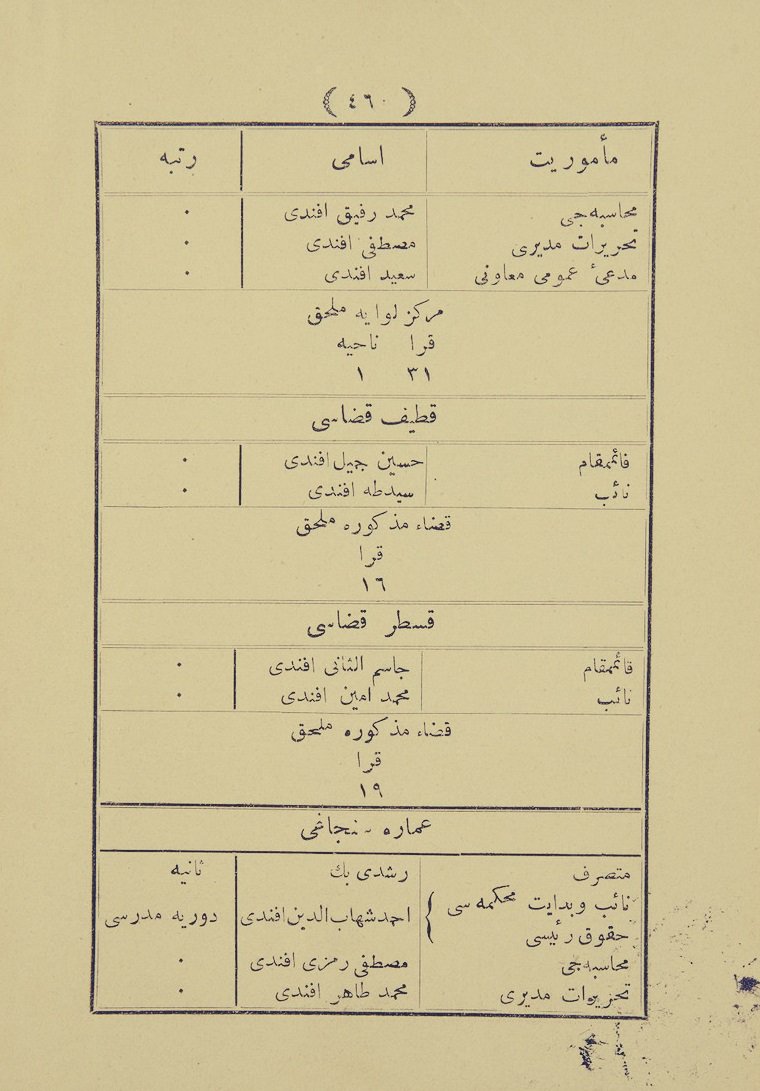 ( ٤٦٠ )
مأموريت اسامى رتبه
محاسبه‌جى محمد رفيق افندى ٠
تحريرات مديرى مصطفى افندى ٠
مدعئ عمومى معاونى سعيد افندى ٠
مركز لوايه ملحق
قرا ناحيه
٣١ ١
قطيف قضاسى
قائممقام حسين جميل افندى ٠
نائب سيدطه افندى ٠
قضاء مذكوره ملحق
قرا
١٦
قسطر قضاسى
قائممقام جاسم الثانى افندى ٠
نائب محمد امين افندى ٠
قضاء مذكوره ملحق
قرا
١٩
عماره - نجاشى
متصرف رشدى بك ثانيه
نائب وبدايت محكمه سى
حقوق رئيسى } احمدشهاب‌الدين‌افندى دوريه مدرسى
محاسبه‌جى مصطفى رمزى افندى ٠
تحزيوات مديرى محمد طاهر افندى ٠